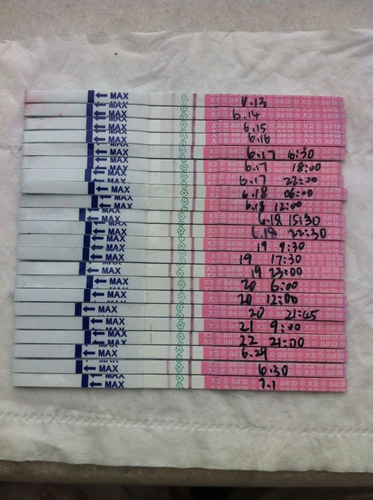 MAX 6.13
MAX 6.14
MAX 6.15
MAX 6.16
MAX 6.17 6:30
MAX 6.17 18:00
MAX 6.17 22:00
MAX 6.18 06:00
MAX 6.18 12:00
MAX 6.18 15:30
MAX 6.18 22:30
MAX 19 9:30
MAX 19 17:30
MAX 19 23:00
MAX 20 6:00
MAX 20 12:00
MAX 20 21:45
MAX 21 9:00
MAX 22 21:00
MAX 6.29
MAX 6.30
MAX 7.1